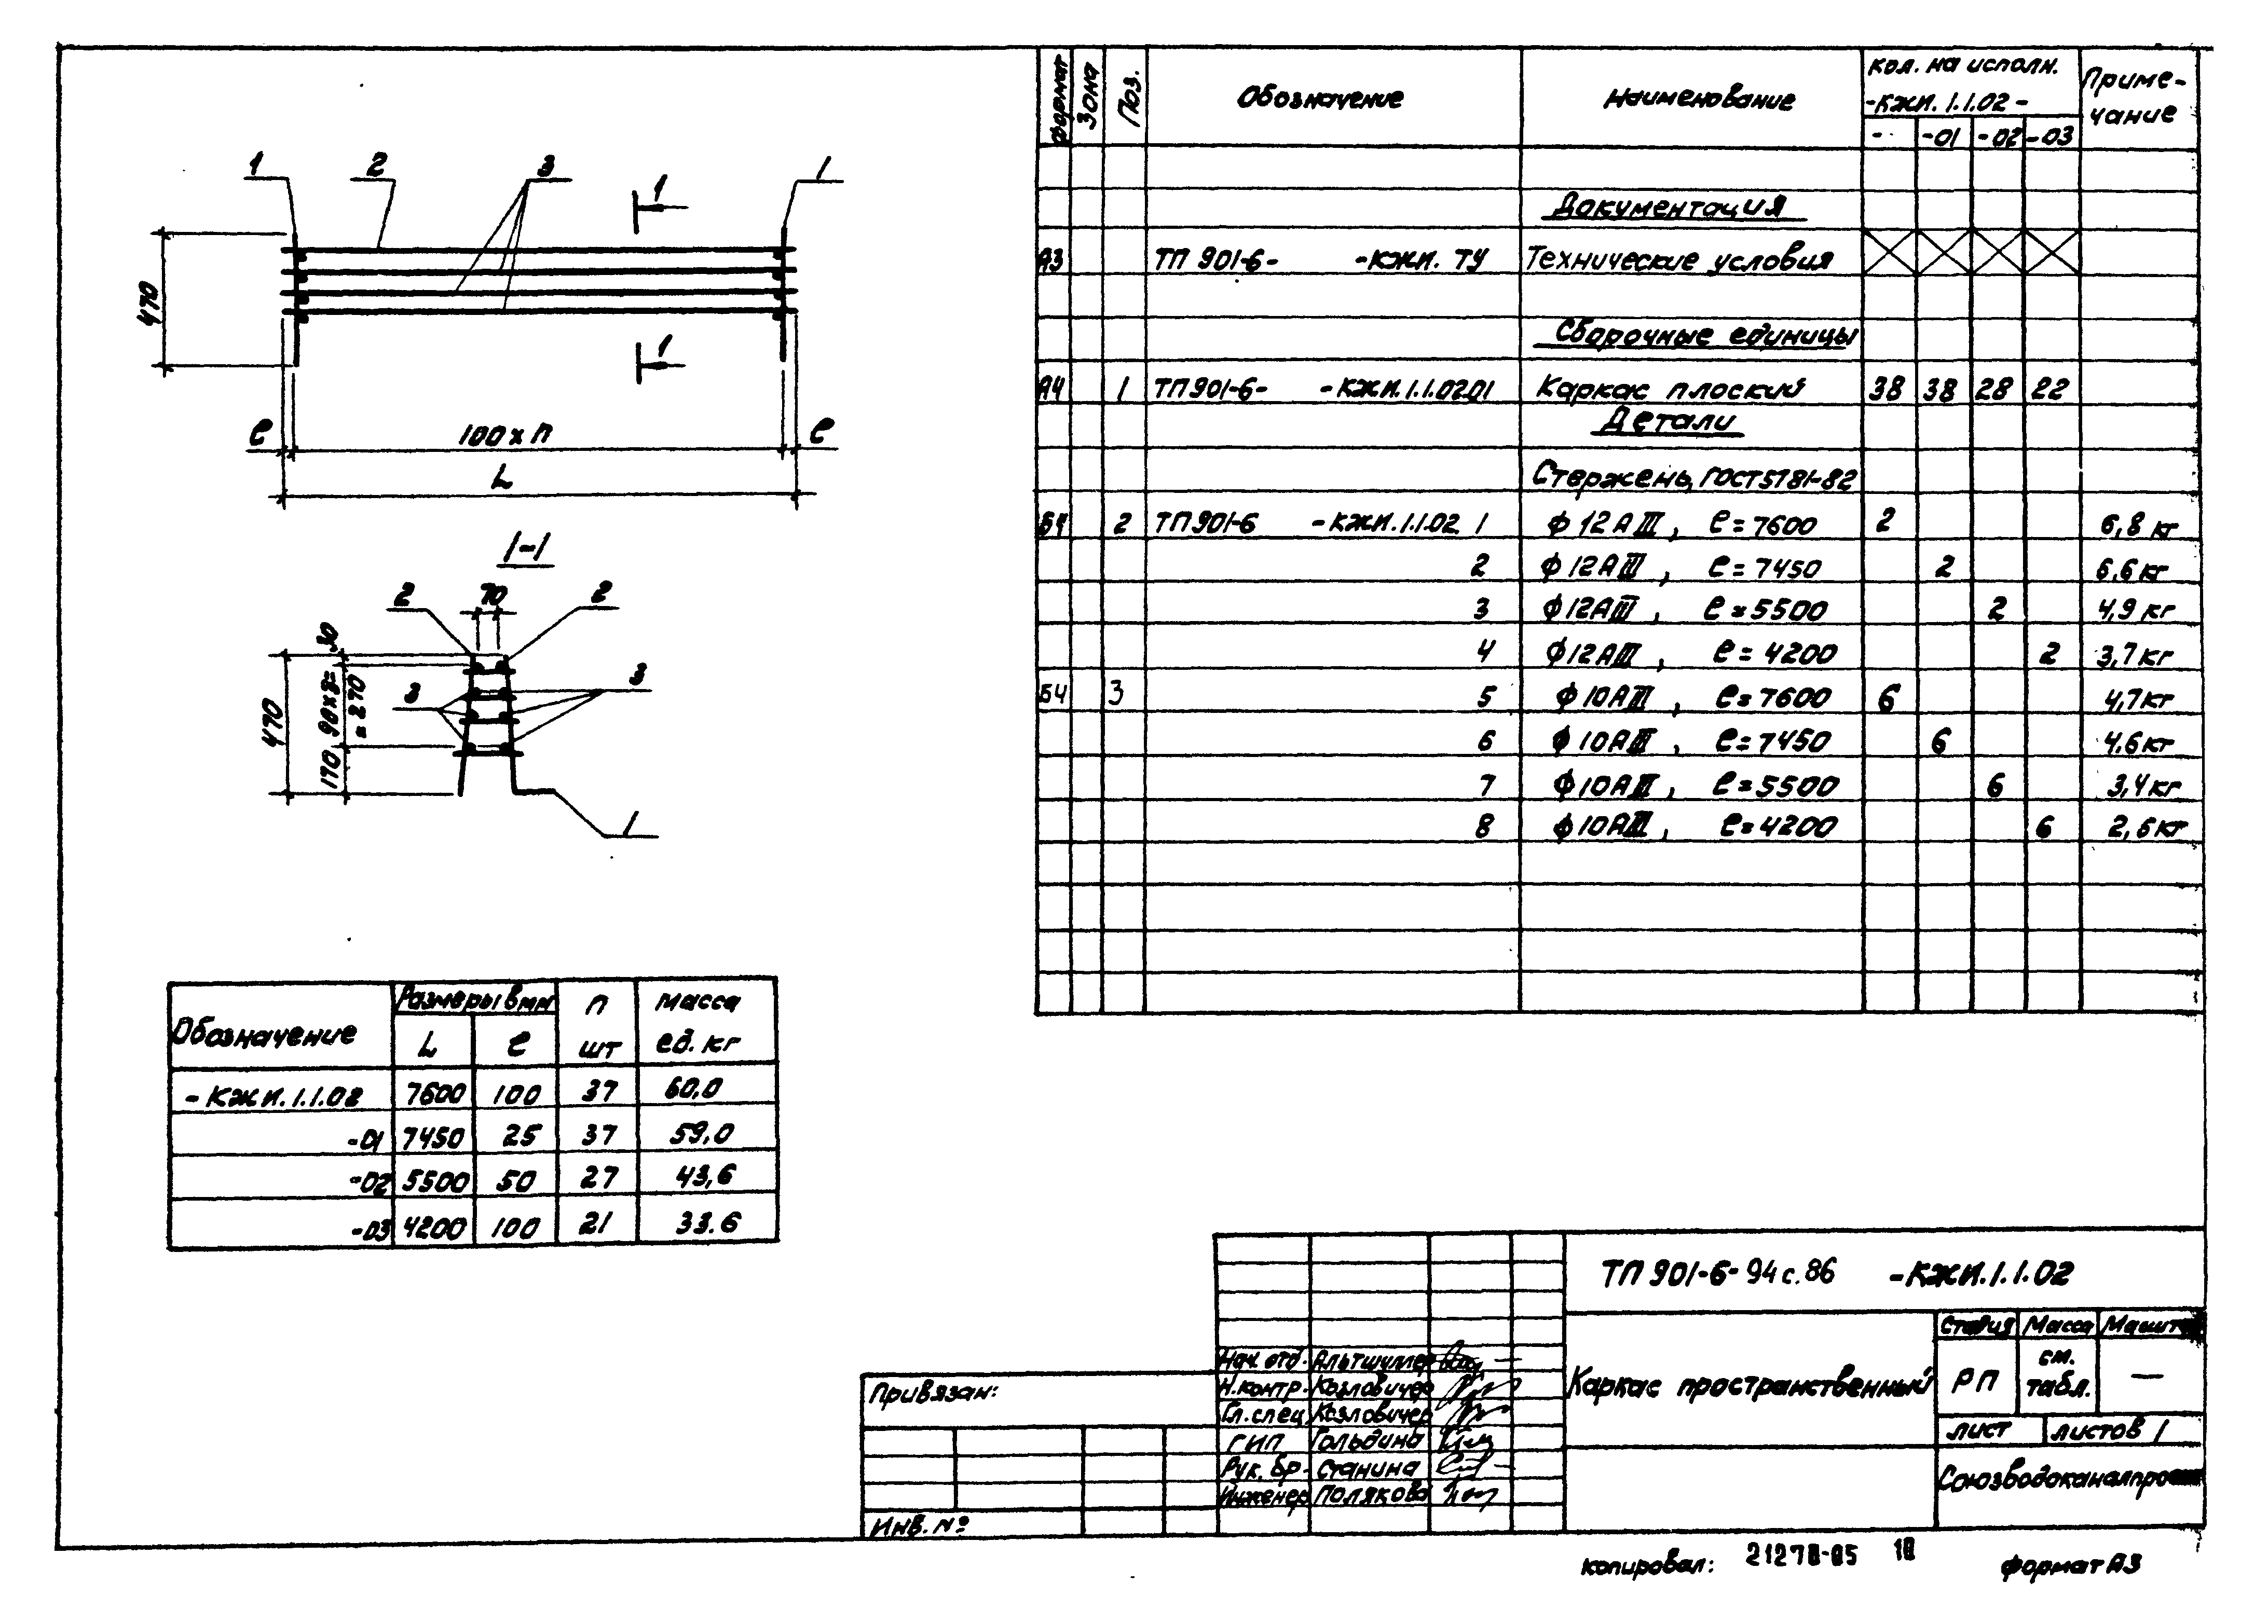 1 2 3 1
1
470
1
е 100 х п е
L
1-1
2 70 2
30
3 3
470 90х3=
=270
170
1
Обозначение Размеры в мм п масса
L е шт ед. кг
-КЖИ.1.1.02 7600 100 37 60,0
-01 7450 25 37 59,0
-02 5500 50 27 43,6
-03 4200 100 21 33.6
формат Зона Поз. Обозначение Наименование Кол. на исполн. Приме-
-КЖИ.1.1.02- чание
- -01 -02 -03
Документация
А3 ТП 901-6- -КЖИ. ТУ Технические условия
Сборочные единицы
А4 1 ТП901-6- -КЖИ.1.1.02.01 Каркас плоский 38 38 28 22
Детали
Стержень, ГОСТ5781-82
Б4 2 ТП901-6 -КЖИ.1.1.02. 1 ф 12 А III, е=7600 2 6,8 кг
2 ф 12АIII, е=7450 2 6.6кг
3 ф12АIII, е=5500 2 4,9 кг
4 ф12АIII, е=4200 2 3,7кг
Б4 3 5 ф10АIII, е=7600 6 4,7кг
6 ф10АIII, е=7450 6 4.6кг
7 ф10АIII, е=5500 6 3,4кг
8 ф10АIII, е=4200 6 2,6кг
ТП 901-6-94с.86 -КЖИ.1.1.02
Каркас пространственный
Стадия Масса Масштаб
РП см. табл. —
лист листов 1
Союзводоканалпроект
Нач. отд. Альтшуллер
Н.контр. Козловичер
Гл.спец. Козловичер
ГИП Гольдина
Рук. бр. Станина
Инженер Полякова
Привязан:
Инв. №
копировал: 21278-05 10 формат А3